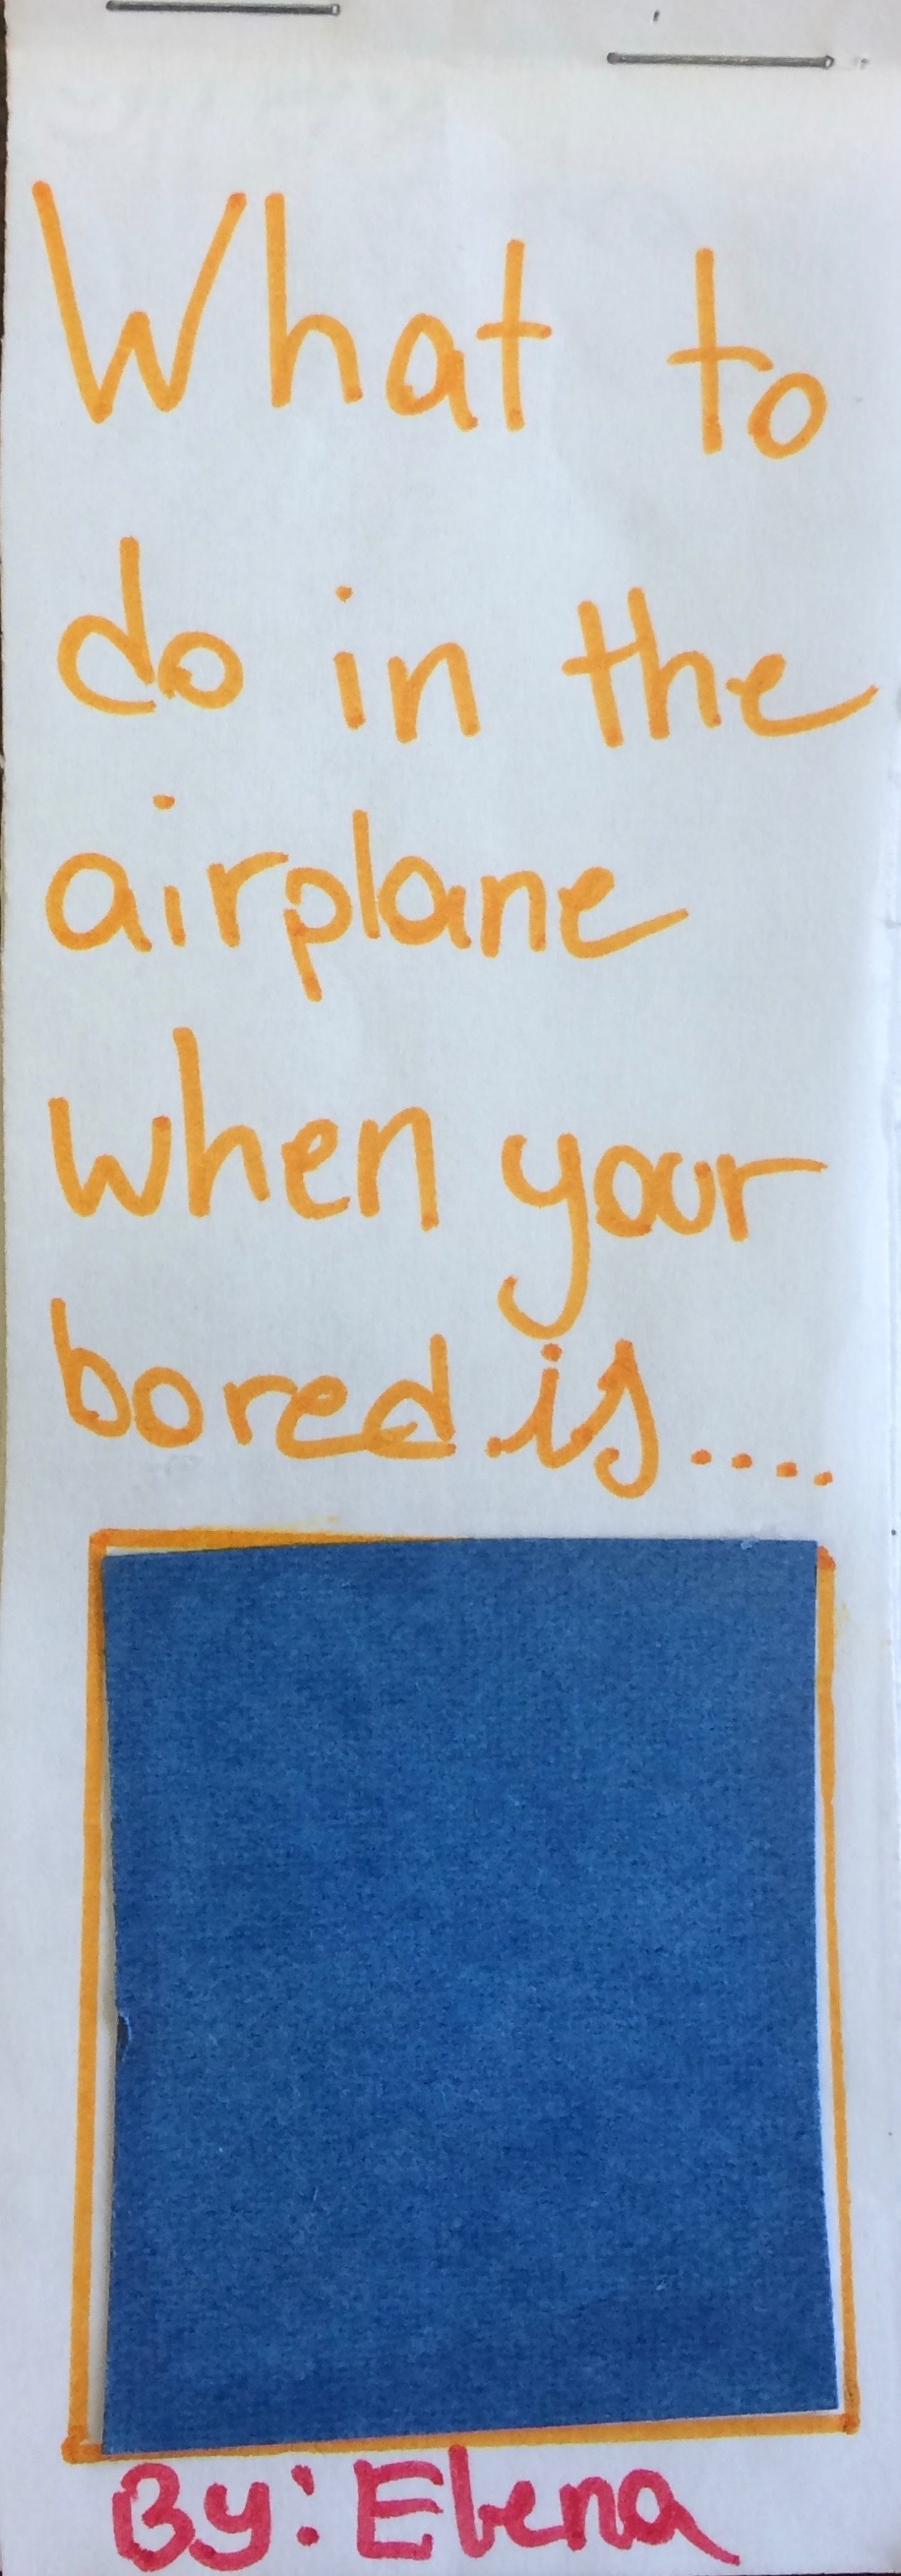 What to
do in the
airplane
when your
bored is....
By: Elena